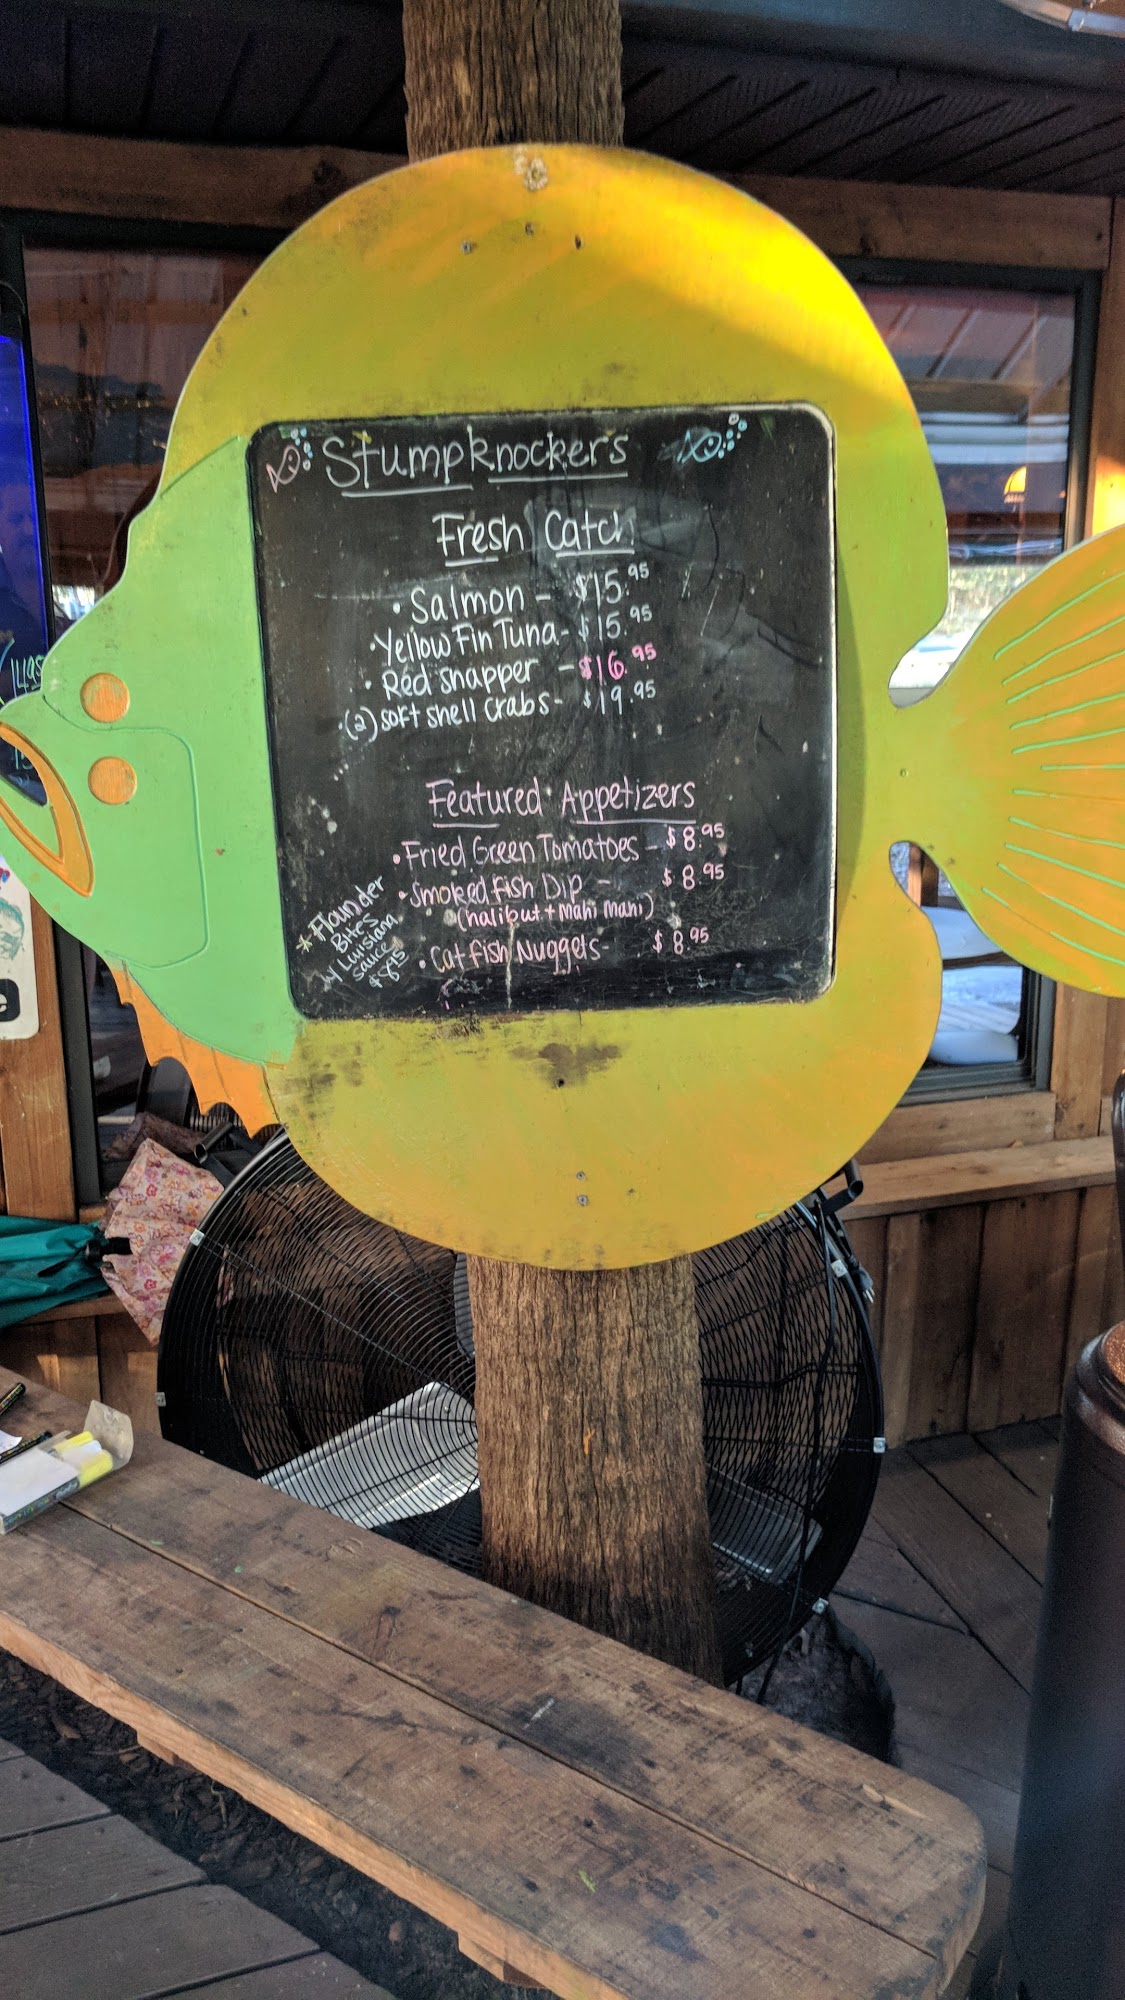 Stumpknockers
Fresh Catch
• Salmon - $15.95
• Yellow Fin Tuna - $15.95
• Red snapper - $16.95
• (2) soft shell crabs - $19.95
Featured Appetizers
• Fried Green Tomatoes - $8.95
• Smoked fish Dip - $8.95
(halibut + Mahi Mahi)
• Cat fish Nuggets - $8.95
* Flounder
Bites
w/ Luisiana
sauce
$8.95
1495